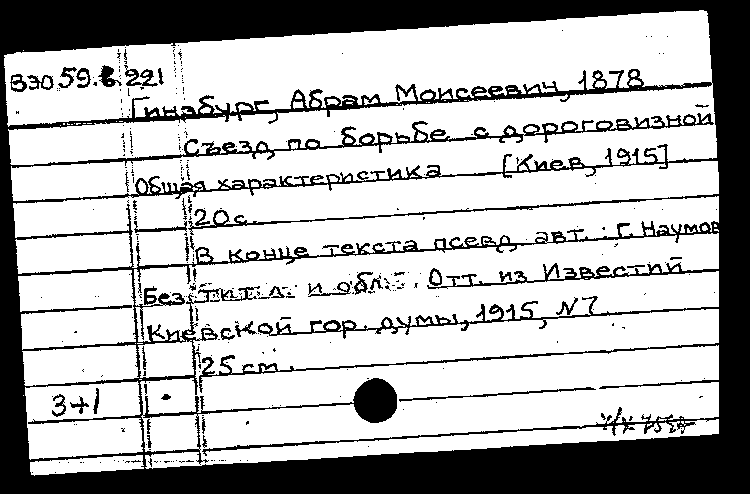 ВЭО 59.6.221
Гинзбург, Абрам Моисеевич, 1878
Съезд по борьбе с дороговизной
Общая характеристика [Киев, 1915]
20с.
В конце текста псевд. авт. : Г. Наумов
Без тит. л. и обл. Отт. из Известий
Киевской гор. думы, 1915, N7.
25 cm.
3+1